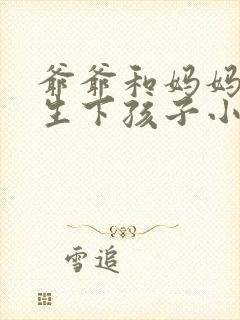 爷爷和妈妈
生下孩子小
雪追